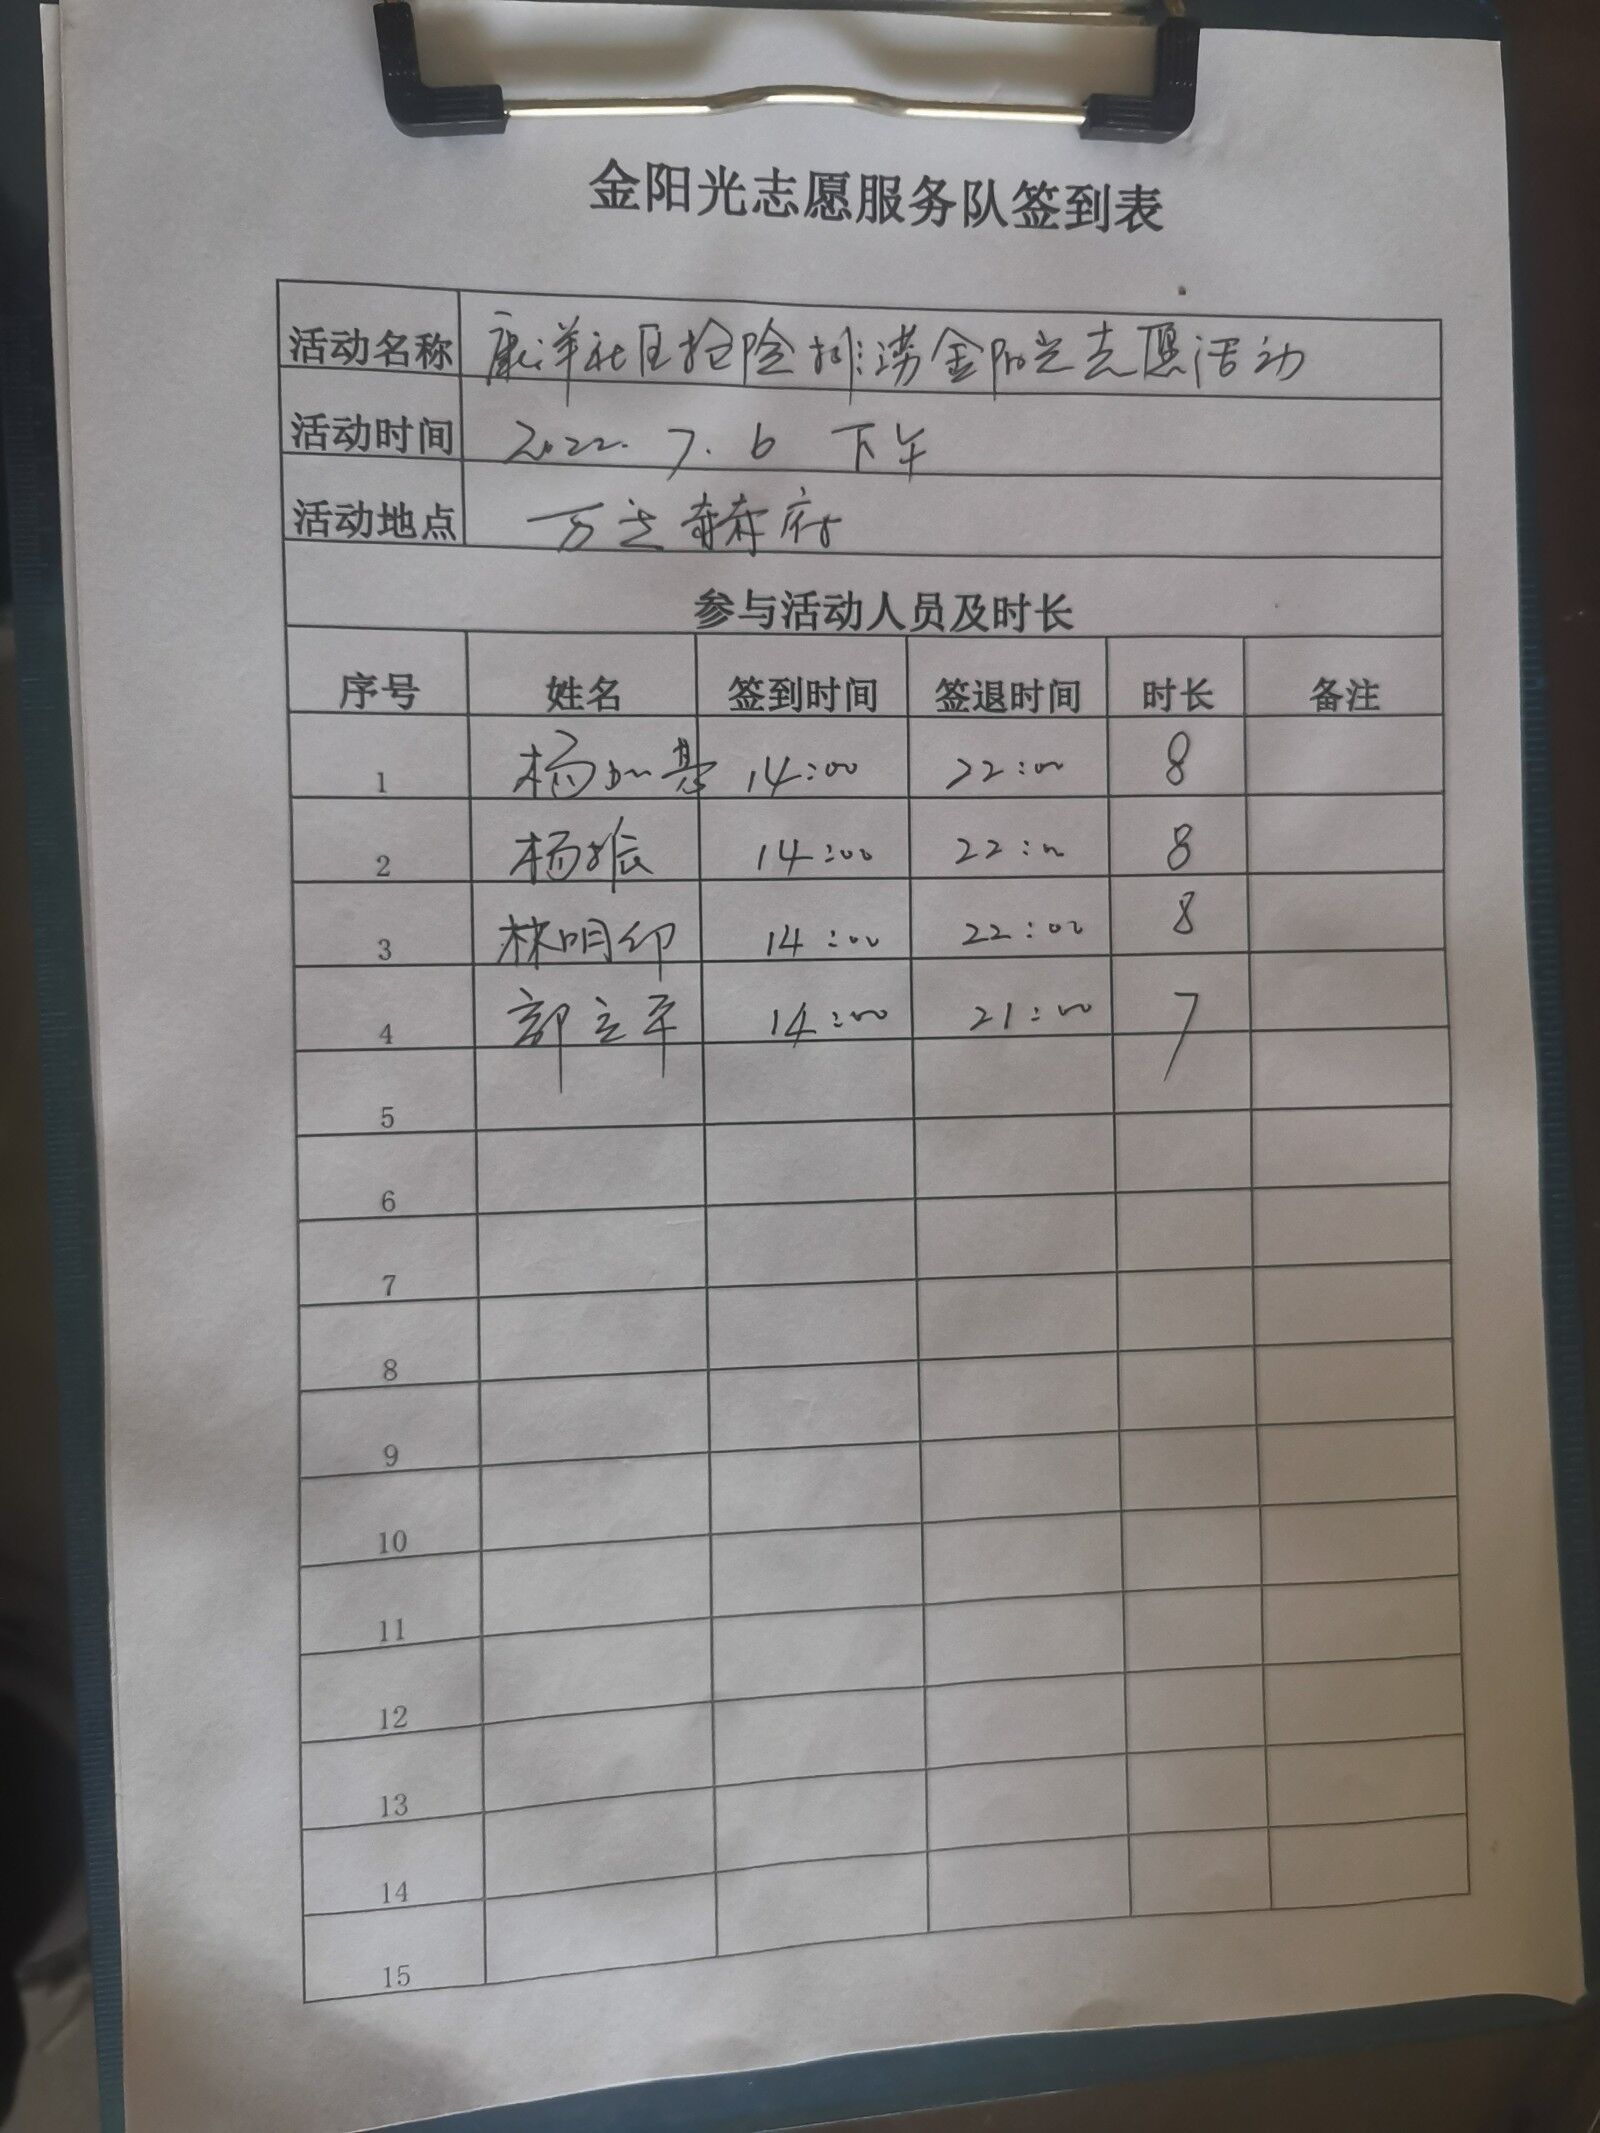 金阳光志愿服务队签到表
活动名称 康洋社区抢险排涝金阳光志愿活动
活动时间 2022.7.6 下午
活动地点 万立赫府
参与活动人员及时长
序号 姓名 签到时间 签退时间 时长 备注
1 杨加基 14:00 22:00 8
2 杨振 14:00 22:00 8
3 林明印 14:00 22:00 8
4 郭立平 14:00 21:00 7
5
6
7
8
9
10
11
12
13
14
15